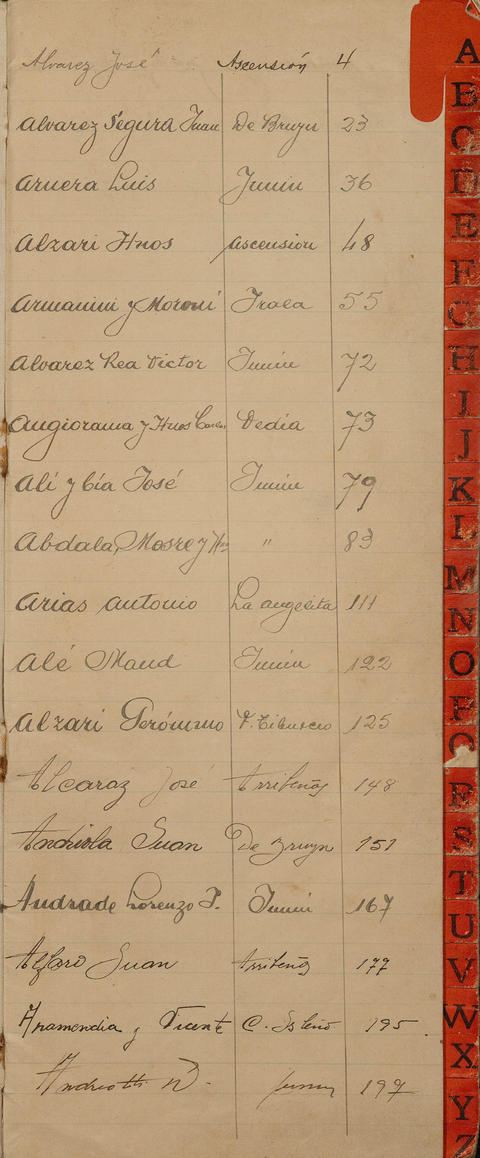 Alvarez José Ascensión 4
Alvarez Segura Juan De Bruyn 23
Arnera Luis Junin 36
Alzari Hnos Ascension 48
Armanini y Moroni Irala 55
Alvarez Rea Victor Junin 72
Angiorama y Hnos Carlos Vedia 73
Alí y Cía José Junin 79
Abdala, Mosre y Hno " 83
Arias Antonio La angelita 111
Alé Maud Junin 122
Alzari Gerónimo F. Tiburcio 125
Alcaraz José Arribeños 148
Andriola Juan De Bruyn 151
Andrade Lorenzo P. Junin 167
Alfaro Juan Arribeños 177
Aramendia y Vicente C. 195.
Andriotti Junin 197
A
B
C
D
E
F
G
H
I
J
K
L
M
N
O
P
Q
R
S
T
U
V
W
X
Y
Z